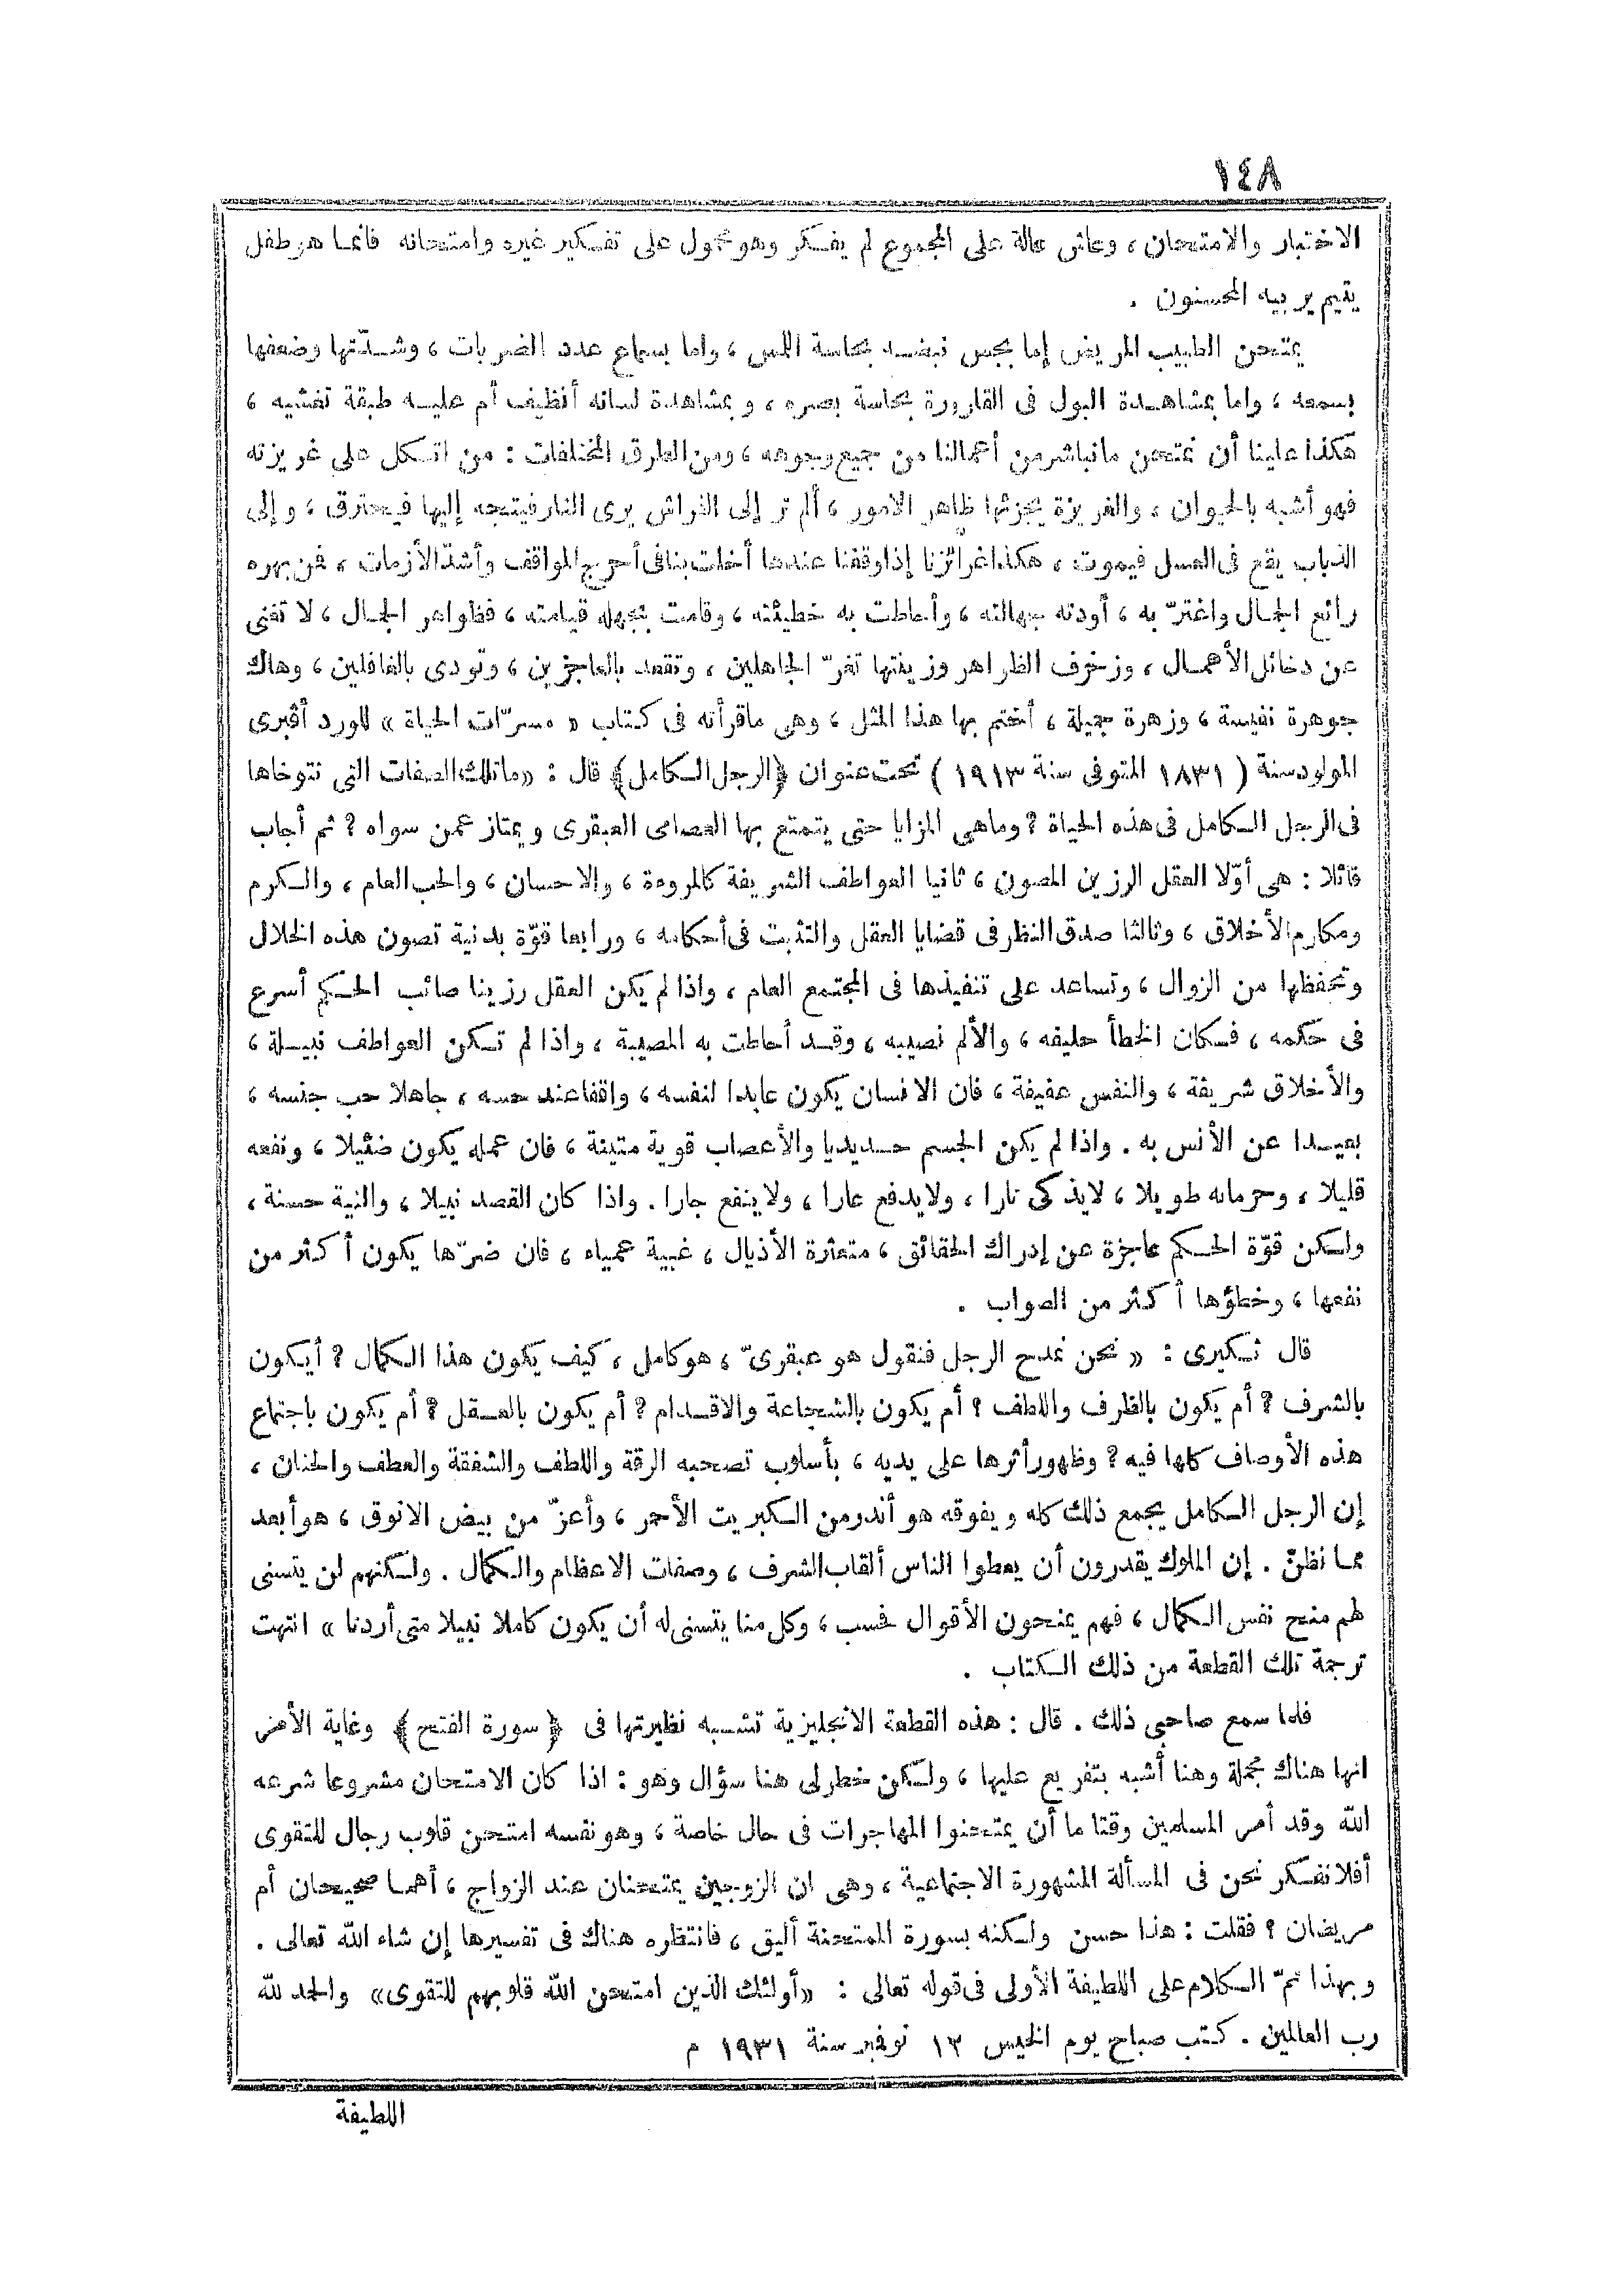 ١٤٨
الاختبار والامتحان ، وعاش عالة على المجموع لم يفكر وهو محمول على تفكير غيره وامتحانه فانما هو طفل
يتيم يربيه المحسنون .
يمتحن الطبيب المريض إما بجس نبضه بحاسة اللمس ، واما بسماع عدد الضربات ، وشدّتها وضعفها
بسمعه ، واما بمشاهدة البول فى القارورة بحاسة بصره ، وبمشاهدة لسانه أنظيف أم عليه طبقة تغشيه ،
هكذا علينا أن نمتحن مانباشر من أعمالنا من جميع وجوهه ، ومن الطرق المختلفات : من اتكل على غريزته
فهو أشبه بالحيوان ، والغريزة يجزئها ظاهر الامور ، ألم تر إلى الفراش يرى النار فيتجه إليها فيحترق ، وإلى
الذباب يقع فى العسل فيموت ، هكذا غرائزنا إذا وقفنا عندها أخلت بنا فى أحرج المواقف وأشدّ الأزمات ، فمن بهره
رائع الجمال واغترّ به ، أودته جهالته ، وأحاطت به خطيئته ، وقامت بجهله قيامته ، فظواهر الجمال ، لا تغنى
عن دخائل الأعمال ، وزخرف الظواهر وزينتها تغرّ الجاهلين ، وتقعد بالعاجزين ، وتودى بالغافلين ، وهاك
جوهرة نفيسة ، وزهرة جميلة ، أختم بها هذا المثل ، وهى ماقرأته فى كتاب « مسرّات الحياة » للورد أڤبرى
المولود سنة ( ١٨٣١ المتوفى سنة ١٩١٣ ) تحت عنوان ﴿الرجل الكامل﴾ قال : «ماتلك الصفات التى نتوخاها
فى الرجل الكامل فى هذه الحياة ؟ وماهى المزايا حتى يتمتع بها العصامى العبقرى ويمتاز عمن سواه ؟ ثم أجاب
قائلا : هى أوّلا العقل الرزين المصون ، ثانيا العواطف الشريفة كالمروءة ، والاحسان ، والحب العام ، والكرم
ومكارم الأخلاق ، وثالثا صدق النظر فى قضايا العقل والتثبت فى أحكامه ، ورابعا قوّة بدنية تصون هذه الخلال
وتحفظها من الزوال ، وتساعد على تنفيذها فى المجتمع العام ، واذا لم يكن العقل رزينا صائب الحكم أسرع
فى حكمه ، فكان الخطأ حليفه ، والألم نصيبه ، وقد أحاطت به المصيبة ، واذا لم تكن العواطف نبيلة ،
والأخلاق شريفة ، والنفس عفيفة ، فان الانسان يكون عابدا لنفسه ، واقفا عند حسه ، جاهلا حب جنسه ،
بعيدا عن الأنس به . واذا لم يكن الجسم حديديا والأعصاب قوية متينة ، فان عمله يكون ضئيلا ، ونفعه
قليلا ، وحرمانه طويلا ، لايذكى نارا ، ولايدفع عارا ، ولاينفع جارا . واذا كان القصد نبيلا ، والنية حسنة ،
ولكن قوّة الحكم عاجزة عن إدراك الحقائق ، متعثرة الأذيال ، غبية عمياء ، فان ضرّها يكون أكثر من
نفعها ، وخطؤها أكثر من الصواب .
قال ثكيرى : « نحن نمدح الرجل فنقول هو عبقرىّ ، هو كامل ، كيف يكون هذا الكمال ؟ أيكون
بالشرف ؟ أم يكون بالظرف واللطف ؟ أم يكون بالشجاعة والاقدام ؟ أم يكون بالعقل ؟ أم يكون باجتماع
هذه الأوصاف كلها فيه ؟ وظهور أثرها على يديه ، بأسلوب تصحبه الرقة واللطف والشفقة والعطف والحنان ،
إن الرجل الكامل يجمع ذلك كله ويفوقه هو أندر من الكبريت الأحمر ، وأعزّ من بيض الانوق ، هو أبعد
مما نظنّ . إن الملوك يقدرون أن يعطوا الناس ألقاب الشرف ، وصفات الاعظام والكمال . ولكنهم لن يتسنى
لهم منح نفس الكمال ، فهم يمنحون الأقوال فحسب ، وكل منا يتسنى له أن يكون كاملا نبيلا متى أردنا » انتهت
ترجمة تلك القطعة من ذلك الكتاب .
فلما سمع صاحبى ذلك . قال : هذه القطعة الانجليزية تشبه نظيرتها فى ﴿ سورة الفتح ﴾ وغاية الأمر
انها هناك مجملة وهنا أشبه بتفريع عليها ، ولكن خطر لى هنا سؤال وهو : اذا كان الامتحان مشروعا شرعه
الله وقد أمر المسلمين وقتا ما أن يمتحنوا المهاجرات فى حال خاصة ، وهو نفسه امتحن قلوب رجال للتقوى
أفلا نفكر نحن فى المسألة المشهورة الاجتماعية ، وهى ان الزوجين يمتحنان عند الزواج ، أهما صحيحان أم
مريضان ؟ فقلت : هذا حسن ولكنه بسورة الممتحنة أليق ، فانتظره هناك فى تفسيرها إن شاء الله تعالى .
وبهذا تمّ الكلام على اللطيفة الأولى فى قوله تعالى : «أولئك الذين امتحن الله قلوبهم للتقوى» والحمد لله
رب العالمين . كتب صباح يوم الخميس ١٣ نوفمبر سنة ١٩٣١ م
اللطيفة